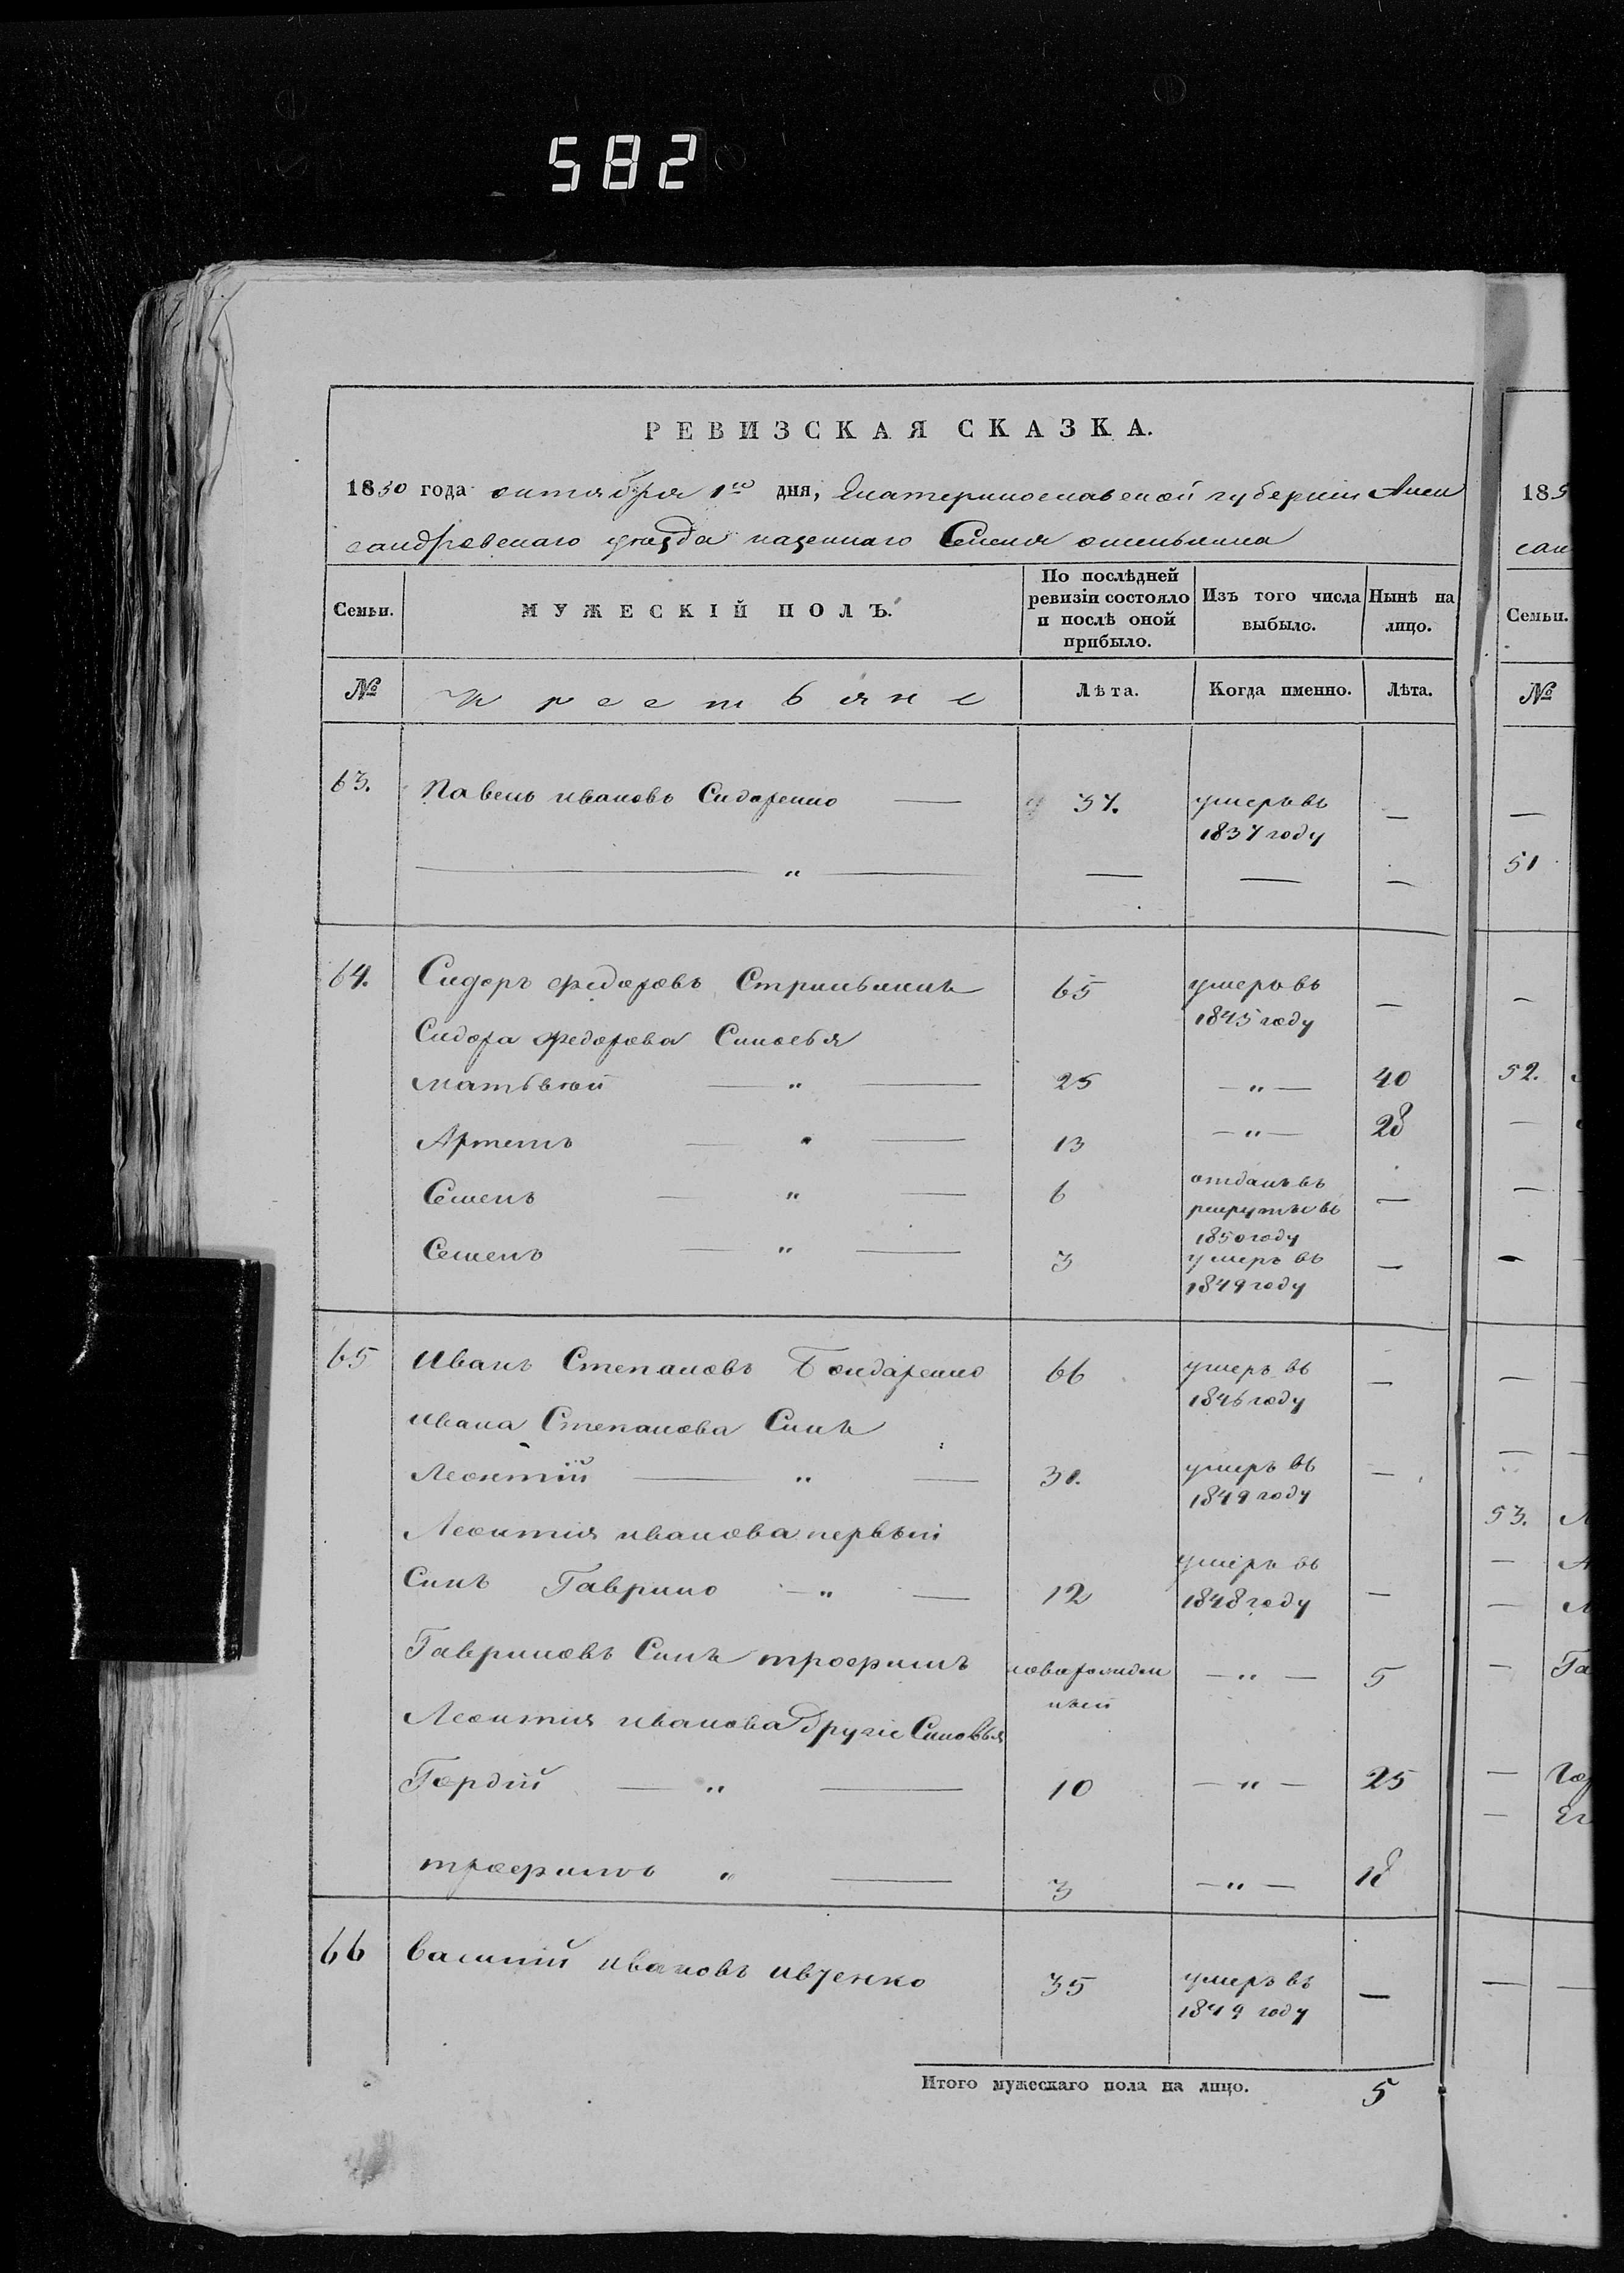 582
РЕВИЗСКАЯ СКАЗКА.
1850 года октября 1го дня, Екатеринославской губернии Алек
сандровскаго уѣзда казеннаго Селенія
Семьи.
МУЖЕСКІЙ ПОЛЪ.
По послѣдней ревизіи состояло и послѣ оной прибыло.
Изъ того числа выбыло.
Нынѣ на лицо.
№
Крестьяне
Лѣта.
Когда именно.
Лѣта.
63. Павелъ ивановъ Сидоренко — 37. умеръ въ 1837 году —
— " — — — —
64. Сидоръ федоровъ 65 умеръ въ 1845 году —
Сидора федорова Синовья
матвѣй — " — 25 — " — 40
Артемъ — " — 13 — " — 28
Семенъ — " — 6 отданъ въ рекруты въ 1850 году —
Семенъ — " — 3 умеръ въ 1849 году —
65 Иванъ Степановъ Бондаренко 66 умеръ въ 1846 году —
ивана Степанова Синъ
Леонтій — " — 31. умеръ въ 1849 году —
Леонтія иванова первый
Синъ Гаврило — " — 12 умеръ въ 1848 году —
Гавриловъ Синъ трофимъ новорожден ный — " — 5
Леонтія иванова другіе Синовья
Гордій — " — 10 — " — 25
трофимъ " — 3 — " — 18
66 василій ивановъ ивченко 35 умеръ въ 1849 году —
Итого мужескаго пола на лицо. 5
185
сан
Семьи.
№
—
51
—
52.
—
—
—
—
—
53. Л
— А
—
— Га
— Гор
— Ег
— —